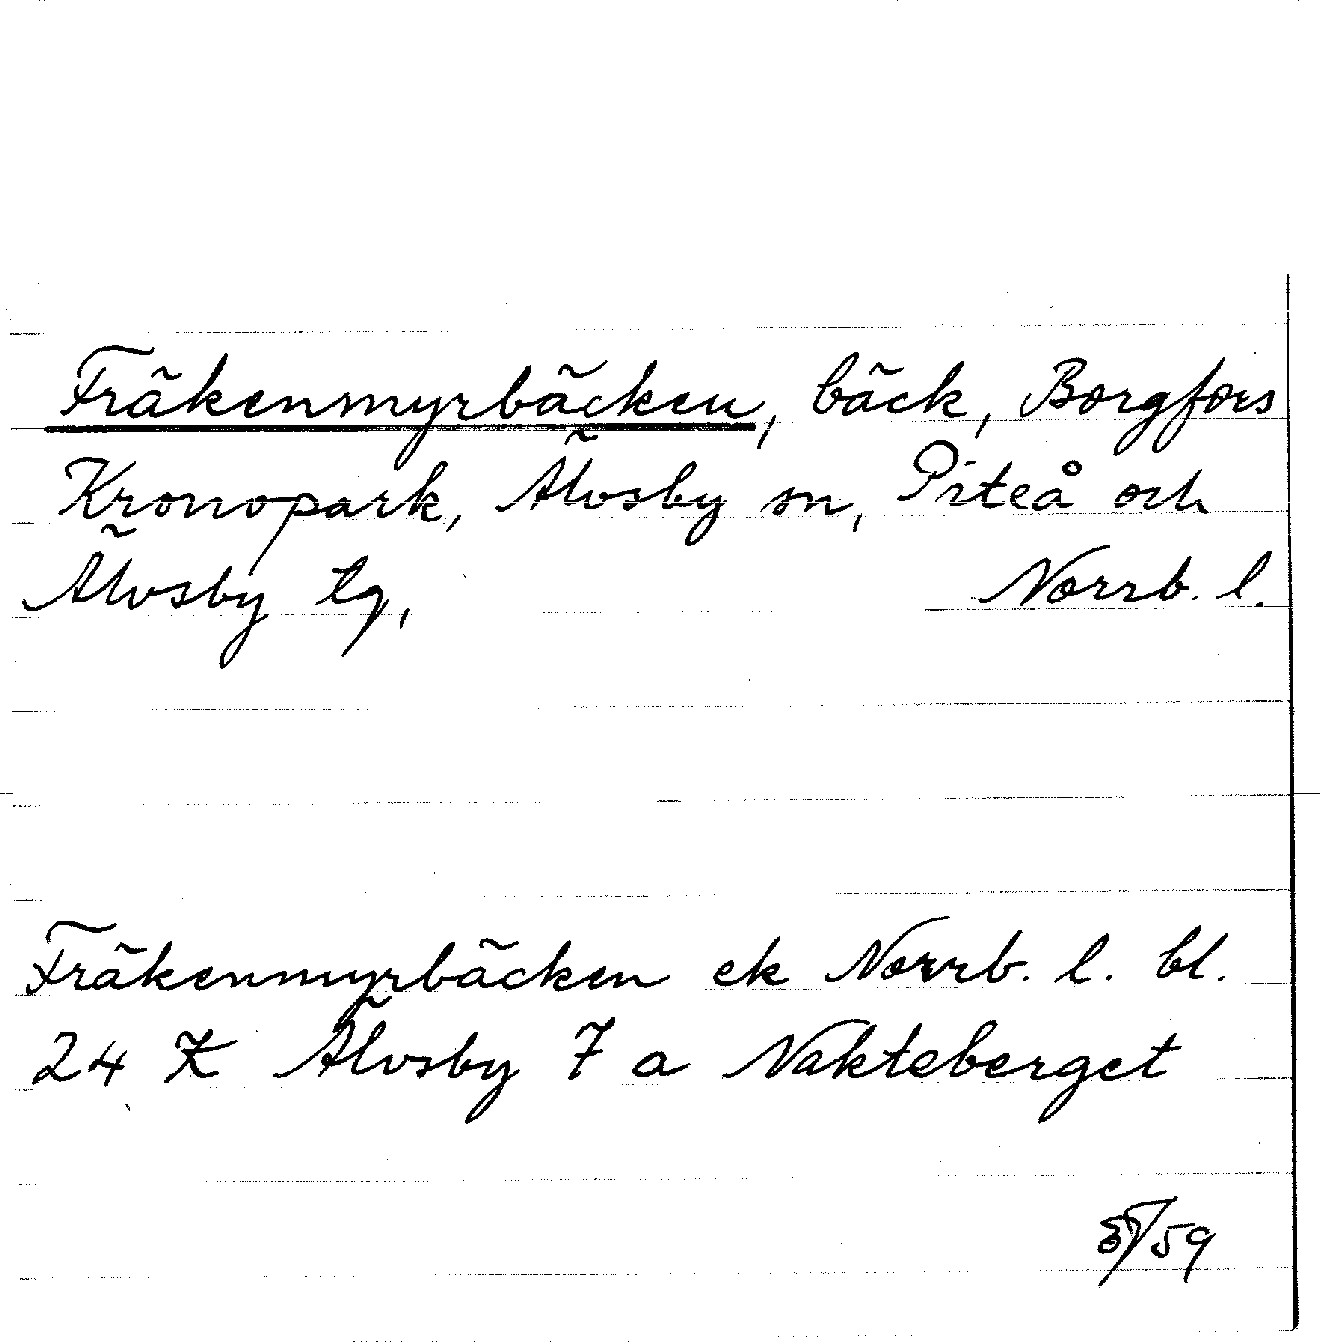 Fräkenmyrbäcken, bäck, Borgfors
Kronopark, Älvsby sn, Piteå och
Älvsby tg, Norrb. l.
Fräkenmyrbäcken ek Norrb. l. bl.
24 K Älvsby 7 a Nakteberget
/59